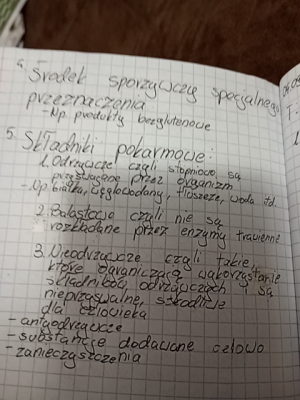 4. Środek sporzywczy specjalnego
przeznaczenia
-Np. produkty bezglutenowe
5. Składniki pokarmowe:
1. Odrzywcze czyli stopniowo są
przyswajane przez organizm
-Np. białka, węglowodany, tłuszcze, woda itd.
2. Balastowe czyli nie są
rozkładane przez enzymy trawienne
3. Nieodrzywcze czyli takie,
które ograniczają wykorzystanie
składników odrzywczych i są
nieprzyswajalne, szkodliwe
dla człowieka
-antyodrzywcze
-substancje dodawane celowo
-zanieczyszczenia